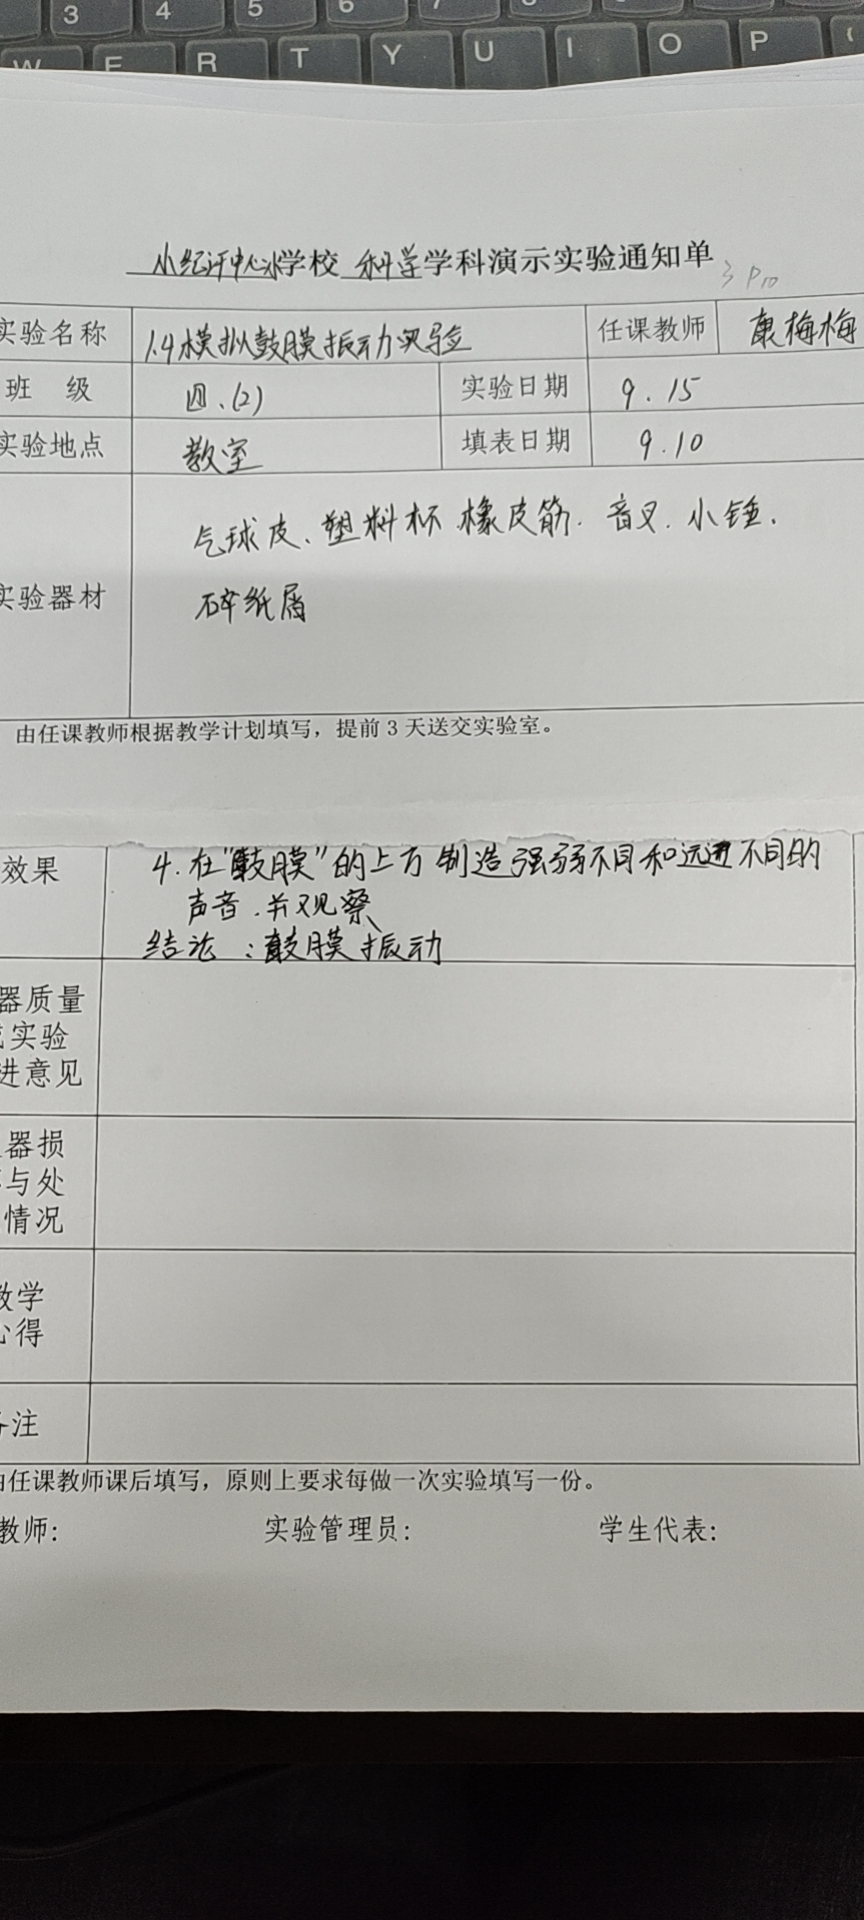 3 4 5 6 7
W E R T Y U I O P
中心小学校 科学学科演示实验通知单
3 P10
实验名称 1.4模拟鼓膜振动实验 任课教师 康梅梅
班 级 四.(2) 实验日期 9.15
实验地点 教室 填表日期 9.10
气球皮、塑料杯 橡皮筋. 音叉. 小锤.
实验器材 碎纸屑
由任课教师根据教学计划填写，提前3天送交实验室。
效果 4.在"鼓膜"的上方制造强弱不同和远进不同的
声音.并观察
结论:鼓膜振动
器质量
实验
进意见
器损
与处
情况
教学
心得
备注
由任课教师课后填写，原则上要求每做一次实验填写一份。
教师: 实验管理员: 学生代表: